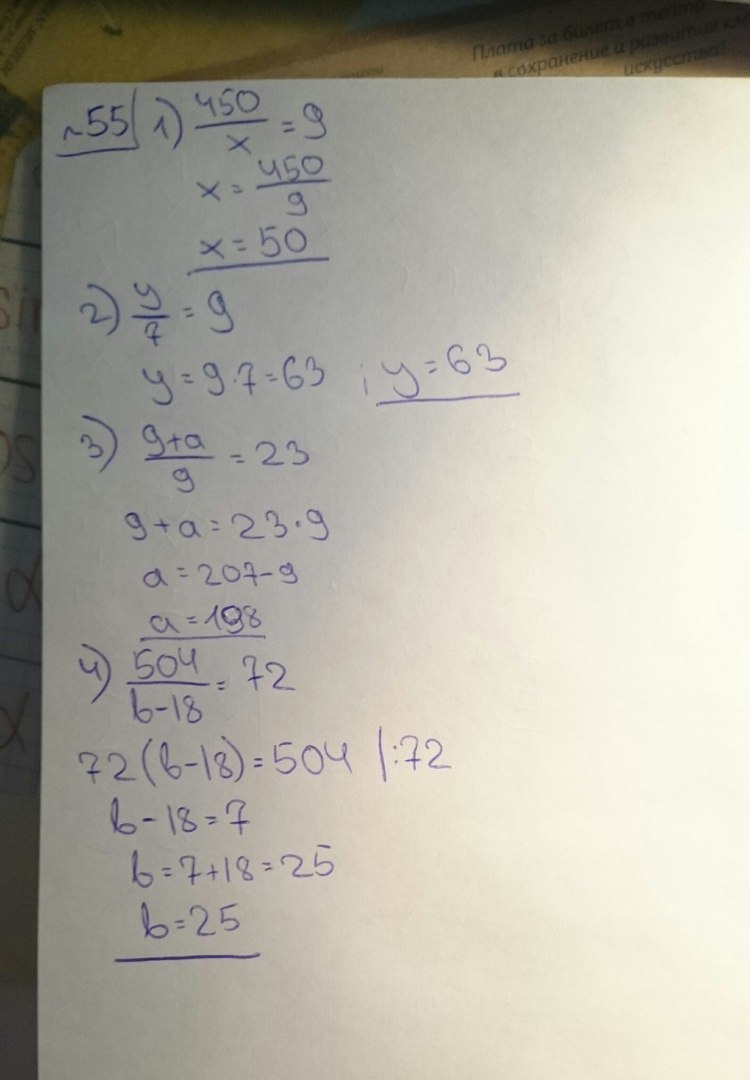 Плата за билет, в театр
и сохранение и развитие
искусства!
№55 1) 450/x = 9
x = 450/9
x = 50
2) y/7 = 9
y = 9·7 = 63 ; y = 63
3) 9+a/9 = 23
9+a = 23·9
a = 207-9
a = 198
4) 504/b-18 = 72
72(b-18) = 504 |:72
b-18 = 7
b = 7+18 = 25
b = 25